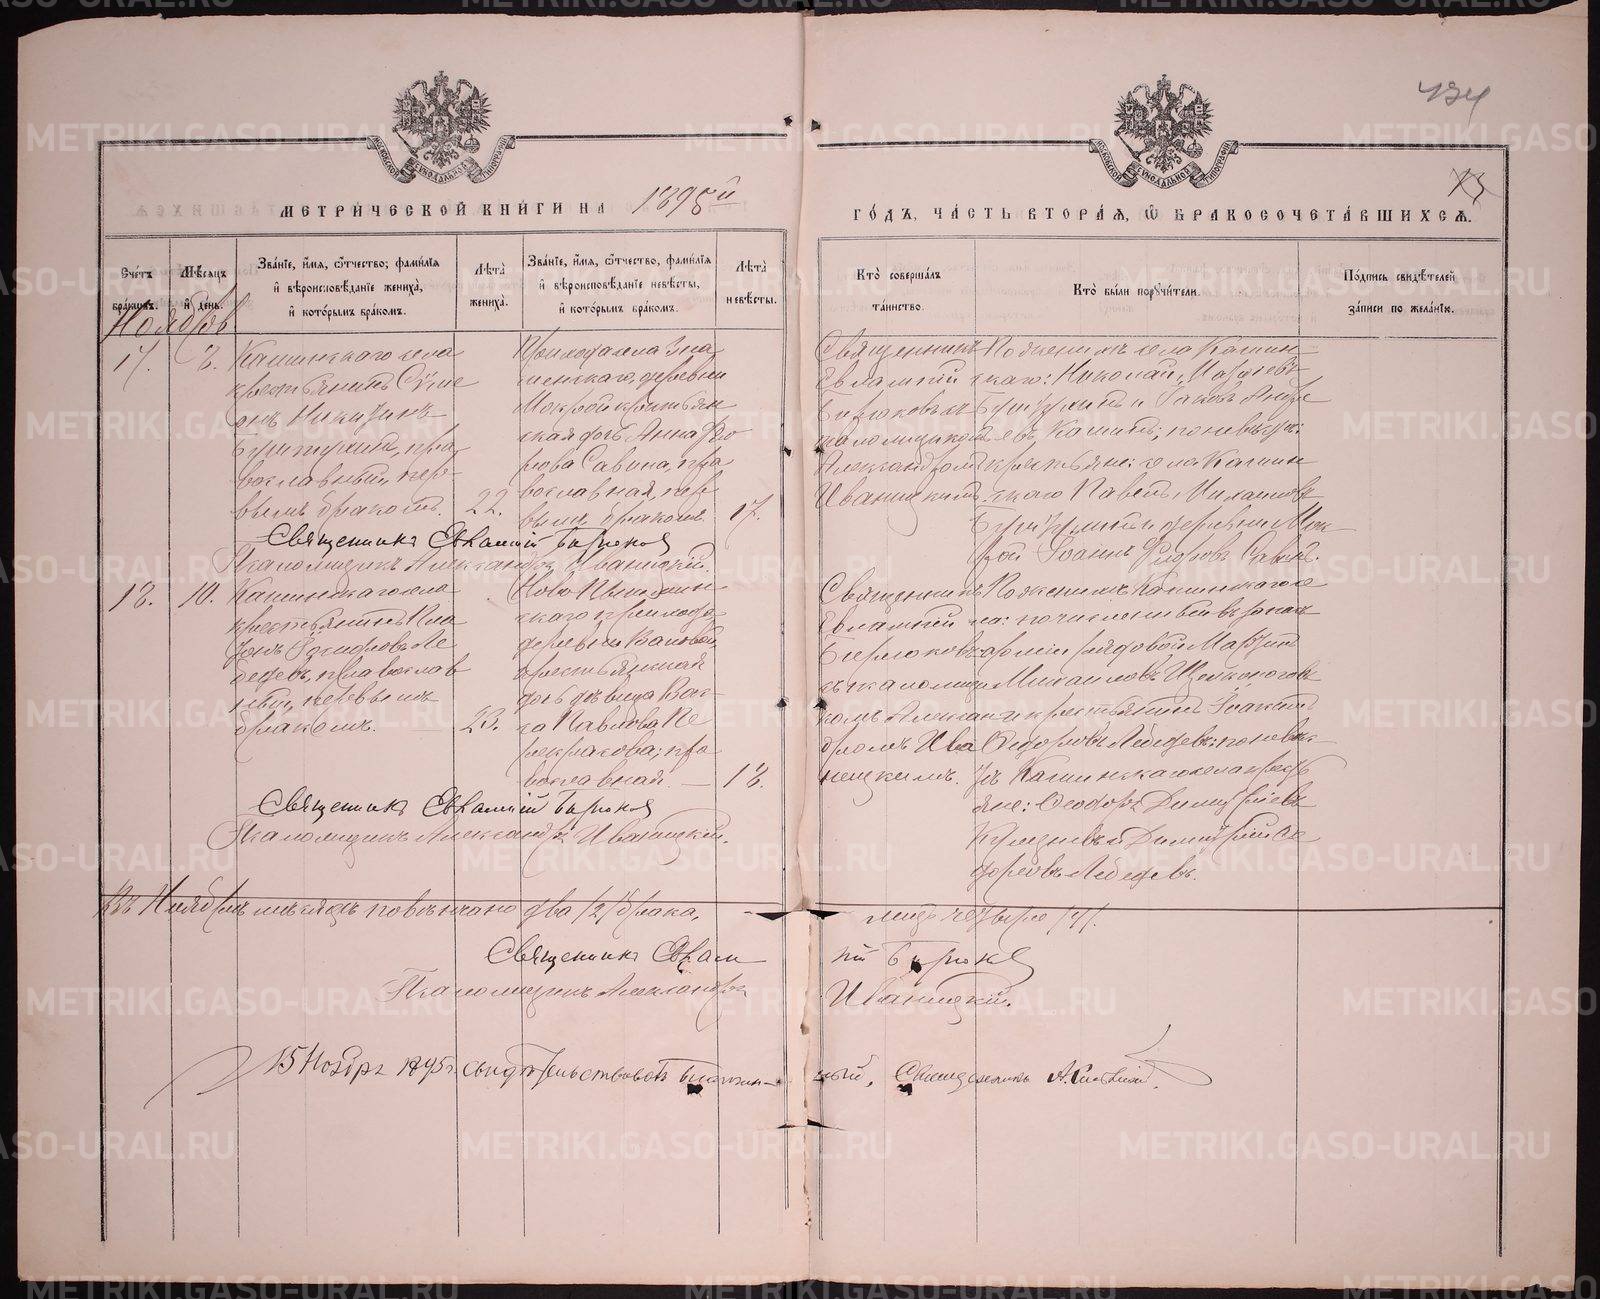 434
МЕТРИЧЕСКОЙ КНИГИ НА 1895й
ГОДЪ, ЧАСТЬ ВТОРАЯ, Ѡ БРАКОСОЧЕТАВШИХСЯ.
Счетъ браковъ.
Мѣсяцъ и день.
Званіе, имя, отчество, фамилія и вѣроисповѣданіе жениха, и которымъ бракомъ.
Лѣта жениха.
Званіе, имя, отчество, фамилія и вѣроисповѣданіе невѣсты, и которымъ бракомъ.
Лѣта невѣсты.
Кто совершалъ таинство.
Кто были поручители.
Подпись свидѣтелей записи по желанію.
Ноябрь
17.
8.
Кашинскаго села
крестьянинъ Сѵме
онъ Никитинъ
православный, пер-
вымъ бракомъ.
22.
Прихода села Зна
менскаго, деревни
Мокрой крестьян
ская дочь Анна Фео
рова Савина, пра
вославная, пер
вымъ бракомъ.
17.
Священникъ
Евлампій
Бирюковъ съ
псаломщикомъ
Александромъ
Иваницкимъ.
По женихѣ села Кашин
скаго: Николай
и Іаковъ Андре
евъ Кашинъ; по невѣстѣ:
крестьяне: села Кашин
скаго Павелъ
и деревни Мок
рой Іоаннъ Ѳедоровъ Савинъ.
Священникъ Евлампій Бирюковъ
Псаломщикъ Александръ Иваницкій.
18.
10.
Кашинскаго села
крестьянинъ Пла
тонъ Ле
бедевъ, православ
ный, первымъ
бракомъ.
23.
прихода,
деревни
крестьянская
дочь дѣвица Вас-
са Павлова Пе
рекрасова; пра
вославная. —
18.
Священникъ
Евлампій
Бирюковъ
съ псаломщи
комъ Алексан
дромъ Ива
ницкимъ.
По женихѣ Кашинскаго се
ла:
арміи рядовой
Михаиловъ
и крестьянинъ Іоакимъ
Ѳедоровъ Лебедевъ; по невѣс-
тѣ Кашинскаго села кресть
яне: Ѳеодоръ Димитріевъ
и Димитрій Ѳе
доровъ Лебедевъ.
Священникъ Евлампій Бирюковъ
Псаломщикъ Александръ Иваницкій.
Въ Ноябрѣ мѣсяцѣ повѣнчано два /2/ брака, лицъ четыре /4/.
Священникъ Евлампій Бирюковъ
Псаломщикъ Александръ Иваницкій.
15 Ноября 1895 г. свидѣтельствовалъ Благочинный, Священникъ А.
METRIKI.GASO-URAL.RU